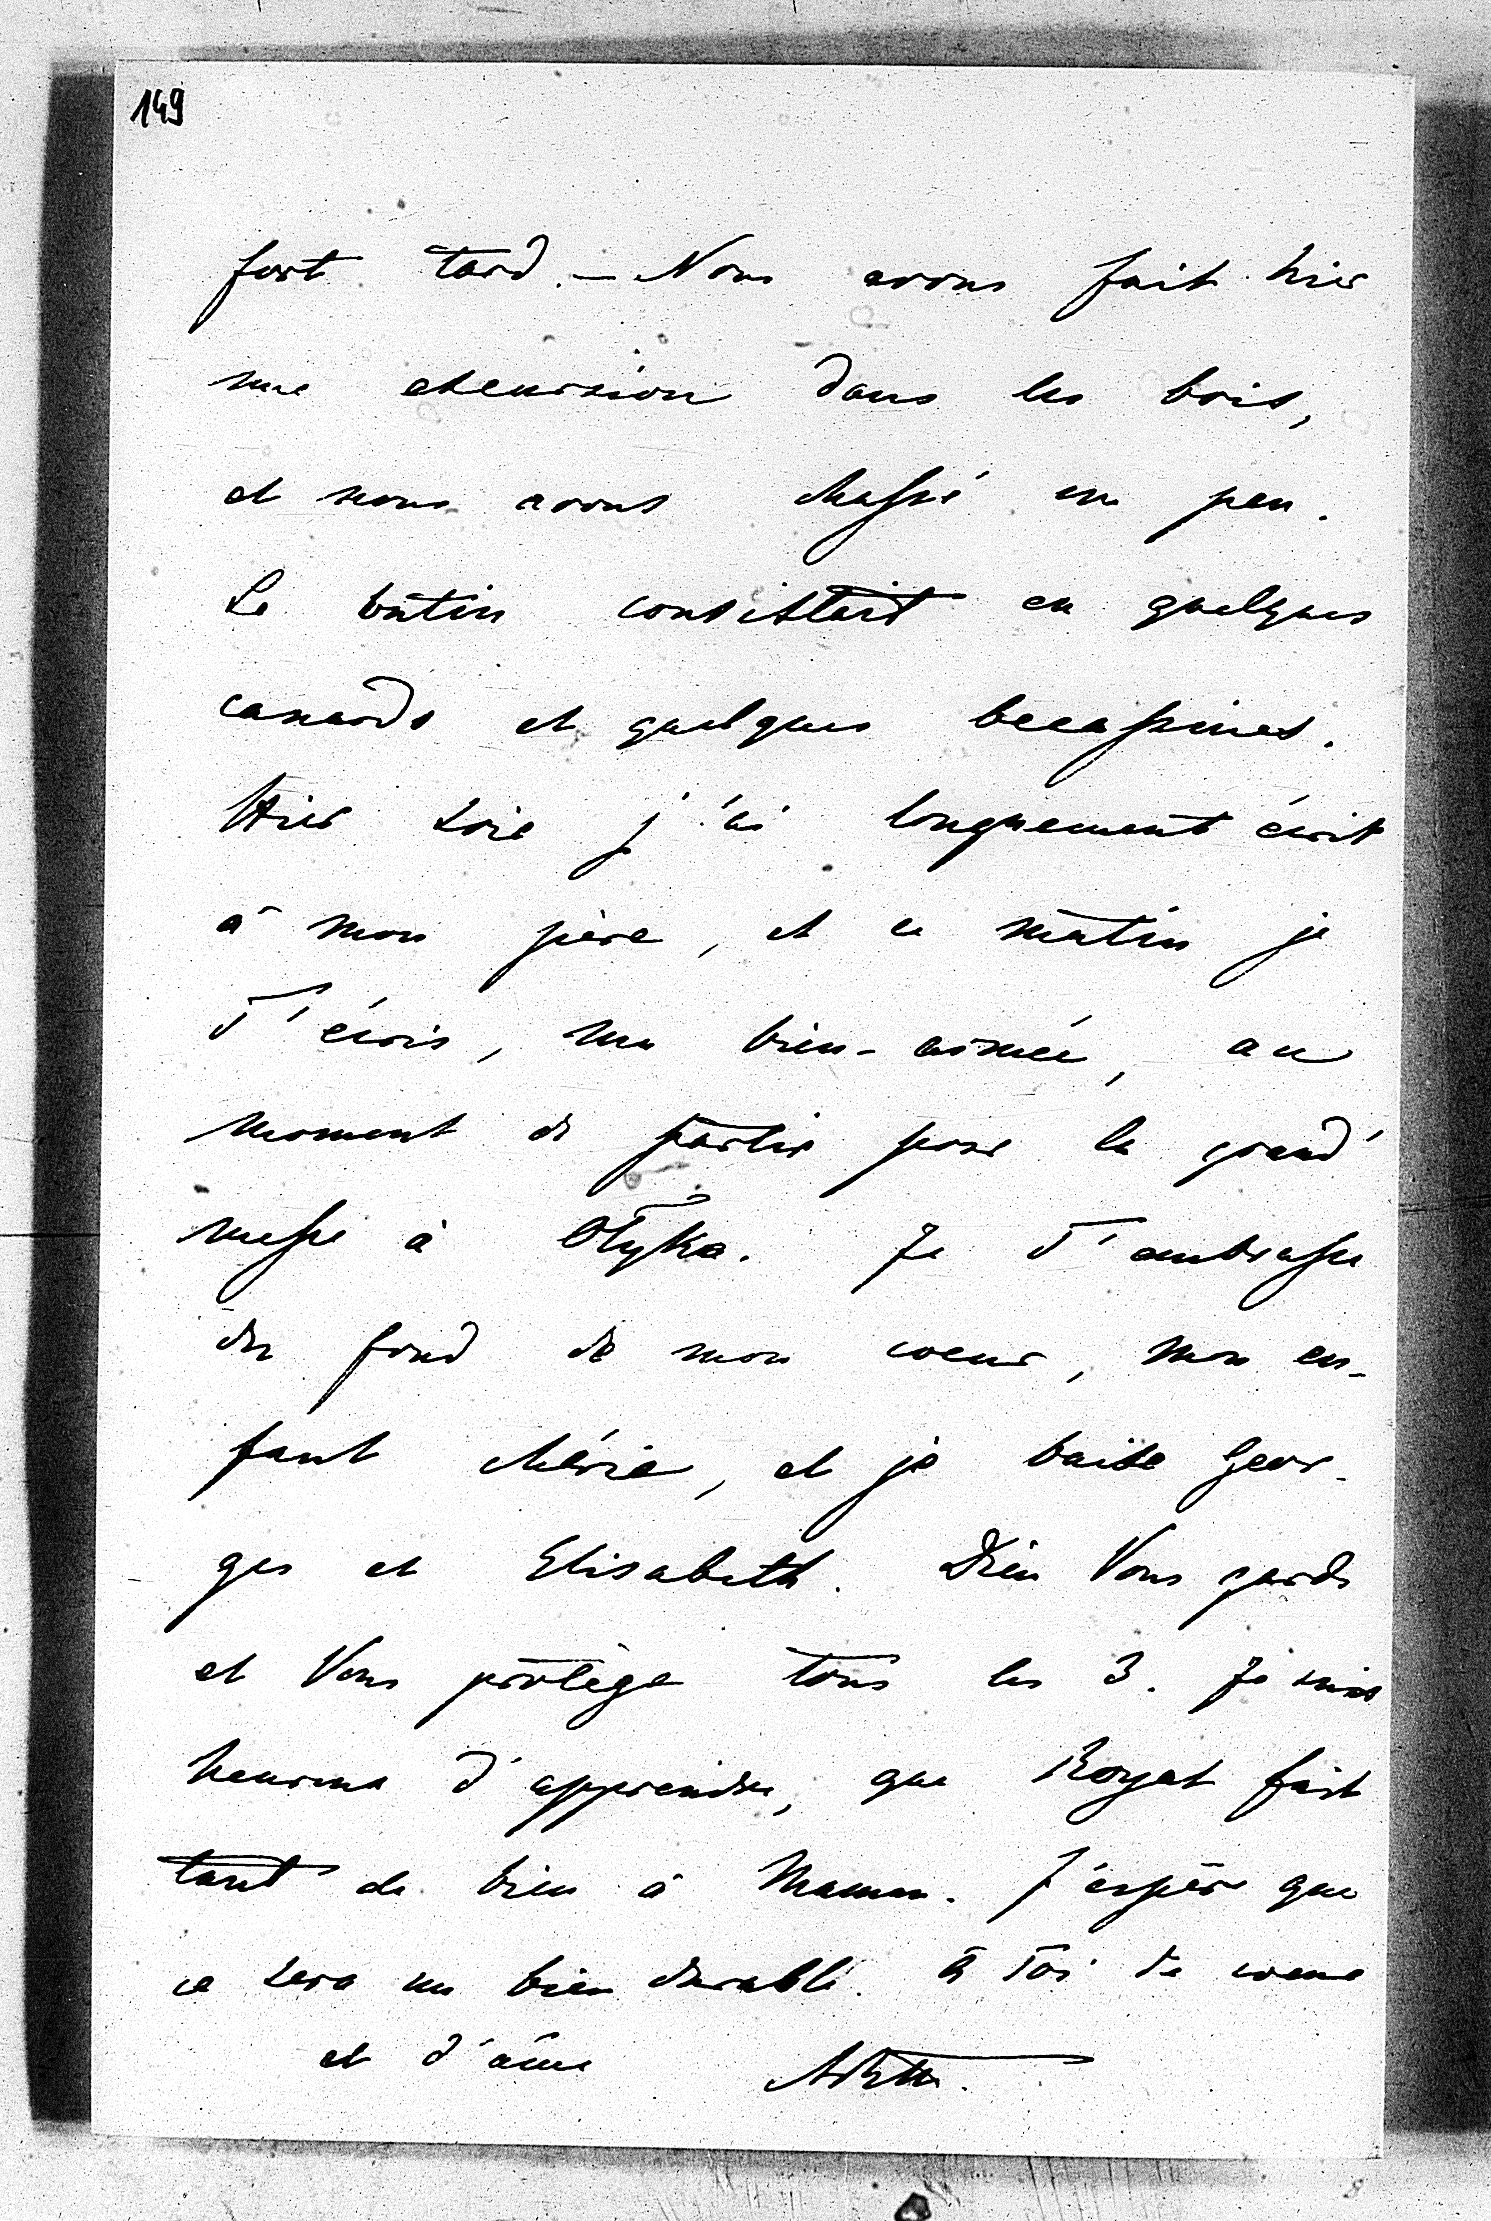 149
fort tard. – Nous avons fait hier
une excursion dans les bois,
et nous avons chassé un peu.
Le butin consistait en quelques
canards et quelques becassines.
Hier soir j'ai longuement écrit
à mon père, et ce matin je
T'écris, ma bien-aimée, au
moment de partir pour la grand'
messe à Olyka. Je T'embrasse
du fond de mon coeur, mon en-
fant chérie, et je baise Geor-
ges et Elisabeth. Dieu Vous garde
et Vous protège tous les 3. Je suis
heureux d'apprendre, que Royat fait
tant de bien à Maman. J'espère que
ce sera un bien durable. à Toi de coeur
et d'âme